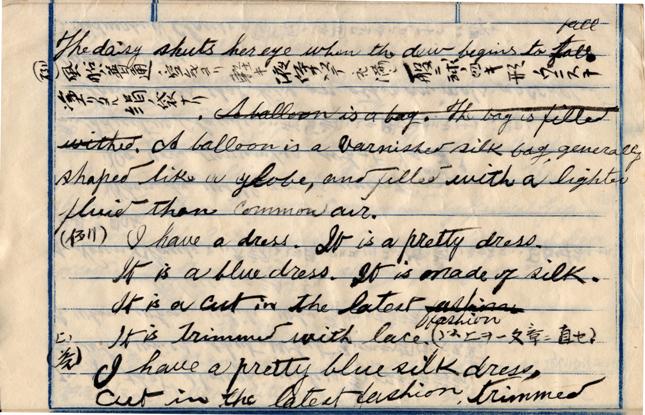 fall
The daisy shuts her eye when the dew begins to fall.
風船普通空気ヨリ軽キ液体ヲ以テ充満シ一般ニ球ノ如キ形
塗リタル絹袋ナリ
. A balloon is a bag. The bag is filled
withed. A balloon is a varnished silk bag, generally
shaped like a globe, and filled with a lighter
fluid than common air.
(例) I have a dress. It is a pretty dress.
It is a blue dress. It is made of silk.
It is a cut in the latest fashion
fashion
It is trimmed with lace. (以上ヲ一文章ニ直セ)
答
I have a pretty blue silk dress,
cut in the latest fashion, trimmed